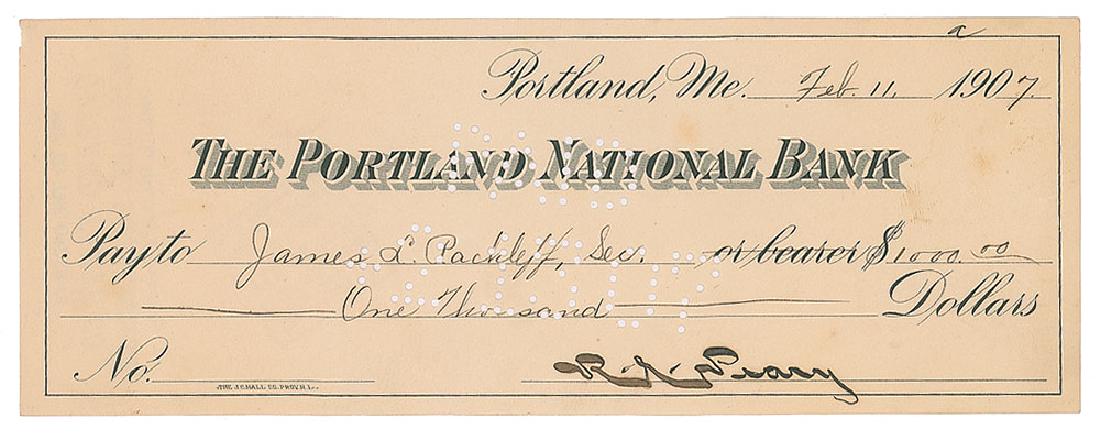 a
Portland, Me. Feb. 11, 1907.
THE PORTLAND NATIONAL BANK
Pay to James L. Rackleff, Sec. or bearer $1000.00
One Thousand Dollars
No.
THE SCHALL CO. PROV. R.I.
R. E. Peary